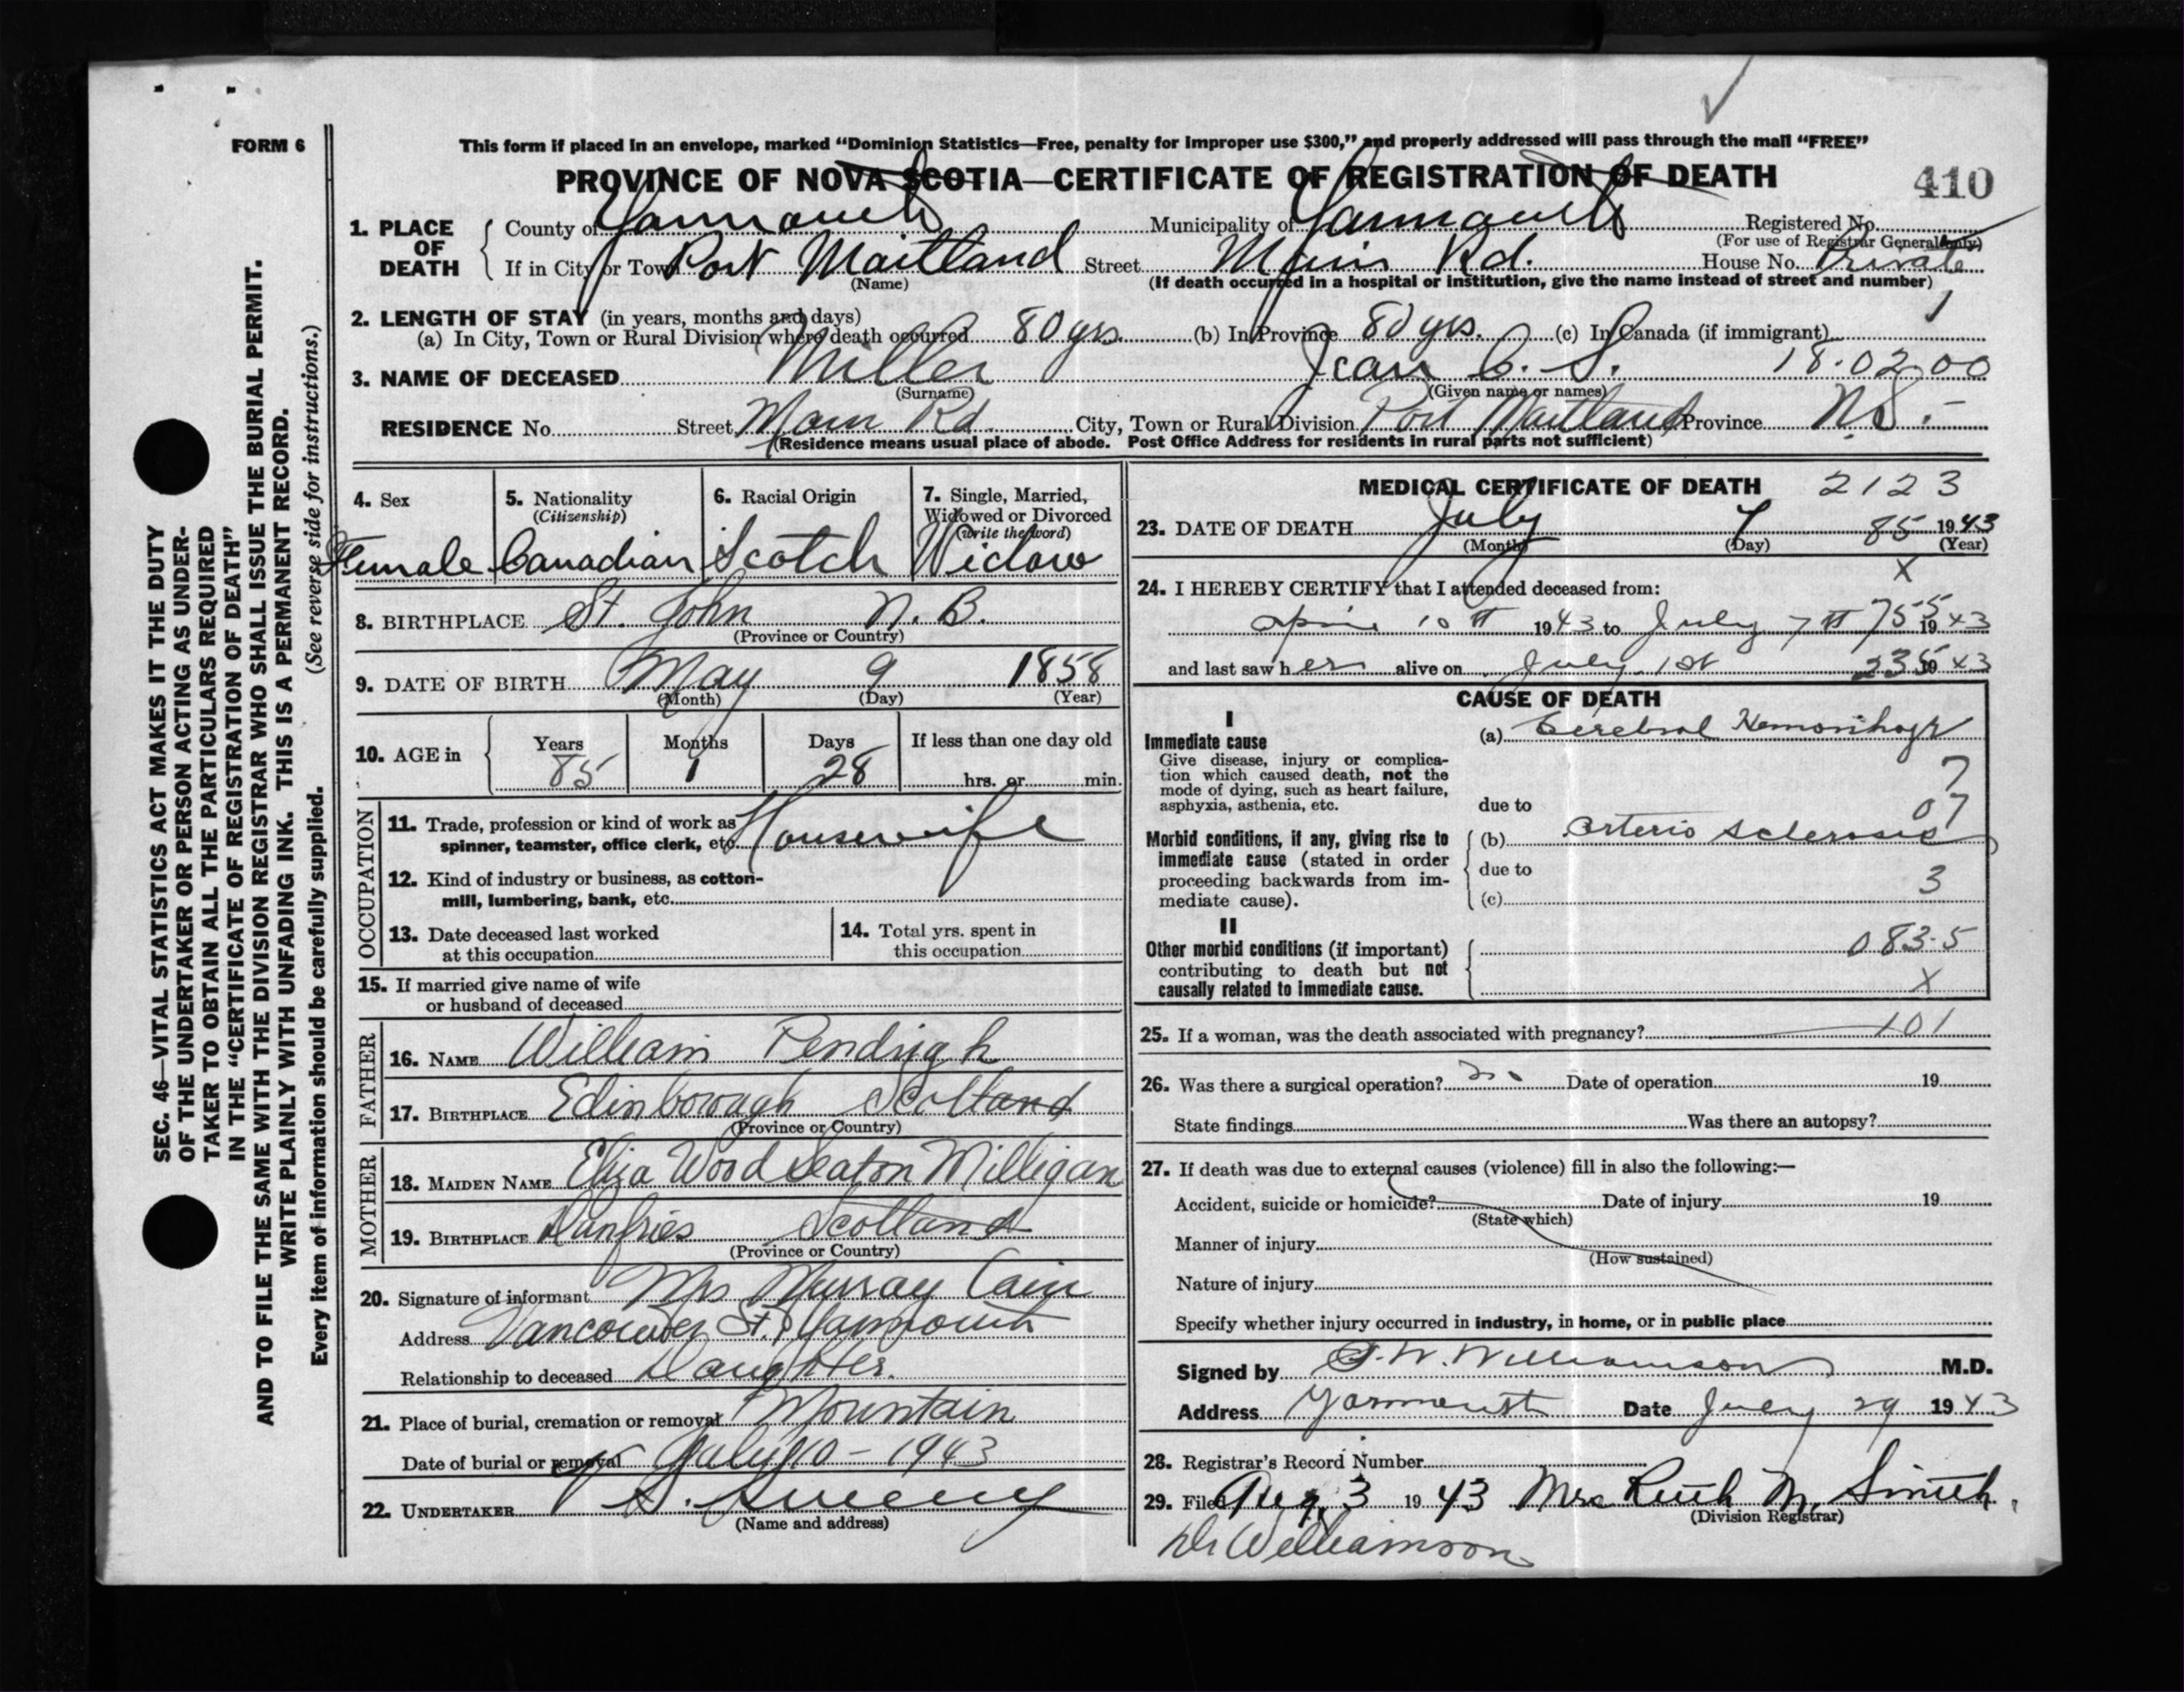 FORM 6
This form if placed in an envelope, marked "Dominion Statistics—Free, penalty for improper use $300," and properly addressed will pass through the mail "FREE"
PROVINCE OF NOVA SCOTIA—CERTIFICATE OF REGISTRATION OF DEATH
410
1. PLACE OF DEATH
County of Yarmouth Municipality of Yarmouth Registered No.
(For use of Registrar General only)
If in City or Town Port Maitland Street Main Rd. House No. Private
(Name) (If death occurred in a hospital or institution, give the name instead of street and number)
2. LENGTH OF STAY (in years, months and days) 1
(a) In City, Town or Rural Division where death occurred 80 yrs. (b) In Province 80 yrs. (c) In Canada (if immigrant)
3. NAME OF DECEASED Miller Jean C. S. 18.02.00
(Surname) (Given name or names)
RESIDENCE No. Street Main Rd. City, Town or Rural Division Port Maitland Province N.S.-
(Residence means usual place of abode. Post Office Address for residents in rural parts not sufficient)
4. Sex
Female
5. Nationality
(Citizenship)
Canadian
6. Racial Origin
Scotch
7. Single, Married,
Widowed or Divorced
(write the word)
Widow
8. BIRTHPLACE St. John N. B.
(Province or Country)
9. DATE OF BIRTH May 9 1858
(Month) (Day) (Year)
10. AGE in
Years Months Days If less than one day old
85 1 28 hrs. or min.
OCCUPATION
11. Trade, profession or kind of work as
spinner, teamster, office clerk, etc. Housewife
12. Kind of industry or business, as cotton-
mill, lumbering, bank, etc.
13. Date deceased last worked
at this occupation
14. Total yrs. spent in
this occupation
15. If married give name of wife
or husband of deceased
FATHER
16. NAME William Pendrigh
17. BIRTHPLACE Edinborough Scotland
(Province or Country)
MOTHER
18. MAIDEN NAME Eliza Wood Seaton Milligan
19. BIRTHPLACE Dunfries Scotland
(Province or Country)
20. Signature of informant Mrs Murray Cain
Address Vancouver St. Yarmouth
Relationship to deceased Daughter.
21. Place of burial, cremation or removal Mountain
Date of burial or removal July 10 - 1943
22. UNDERTAKER Sweeny
(Name and address)
MEDICAL CERTIFICATE OF DEATH 2123
23. DATE OF DEATH July 7 85 1943
(Month) (Day) (Year)
X
24. I HEREBY CERTIFY that I attended deceased from:
April 10th 1943 to July 7th 755 1943
and last saw her alive on July 1st 235 1943
CAUSE OF DEATH
I
Immediate cause
Give disease, injury or complica-
tion which caused death, not the
mode of dying, such as heart failure,
asphyxia, asthenia, etc.
(a) Cerebral Hemorrhage
7
due to 07
Morbid conditions, if any, giving rise to
immediate cause (stated in order
proceeding backwards from im-
mediate cause).
(b) Arterio Sclerosis
due to
3
(c)
II
Other morbid conditions (if important)
contributing to death but not
causally related to immediate cause.
083.5
X
25. If a woman, was the death associated with pregnancy? 101
26. Was there a surgical operation? No Date of operation 19
State findings Was there an autopsy?
27. If death was due to external causes (violence) fill in also the following:—
Accident, suicide or homicide? Date of injury 19
(State which)
Manner of injury
(How sustained)
Nature of injury
Specify whether injury occurred in industry, in home, or in public place
Signed by Williamson M.D.
Address Yarmouth Date July 29 1943
28. Registrar's Record Number
29. Filed Aug. 3 1943 Mrs Ruth M. Smith
(Division Registrar)
Dr Williamson
SEC. 46—VITAL STATISTICS ACT MAKES IT THE DUTY
OF THE UNDERTAKER OR PERSON ACTING AS UNDER-
TAKER TO OBTAIN ALL THE PARTICULARS REQUIRED
IN THE "CERTIFICATE OF REGISTRATION OF DEATH"
AND TO FILE THE SAME WITH THE DIVISION REGISTRAR WHO SHALL ISSUE THE BURIAL PERMIT.
WRITE PLAINLY WITH UNFADING INK. THIS IS A PERMANENT RECORD.
Every item of information should be carefully supplied. (See reverse side for instructions.)